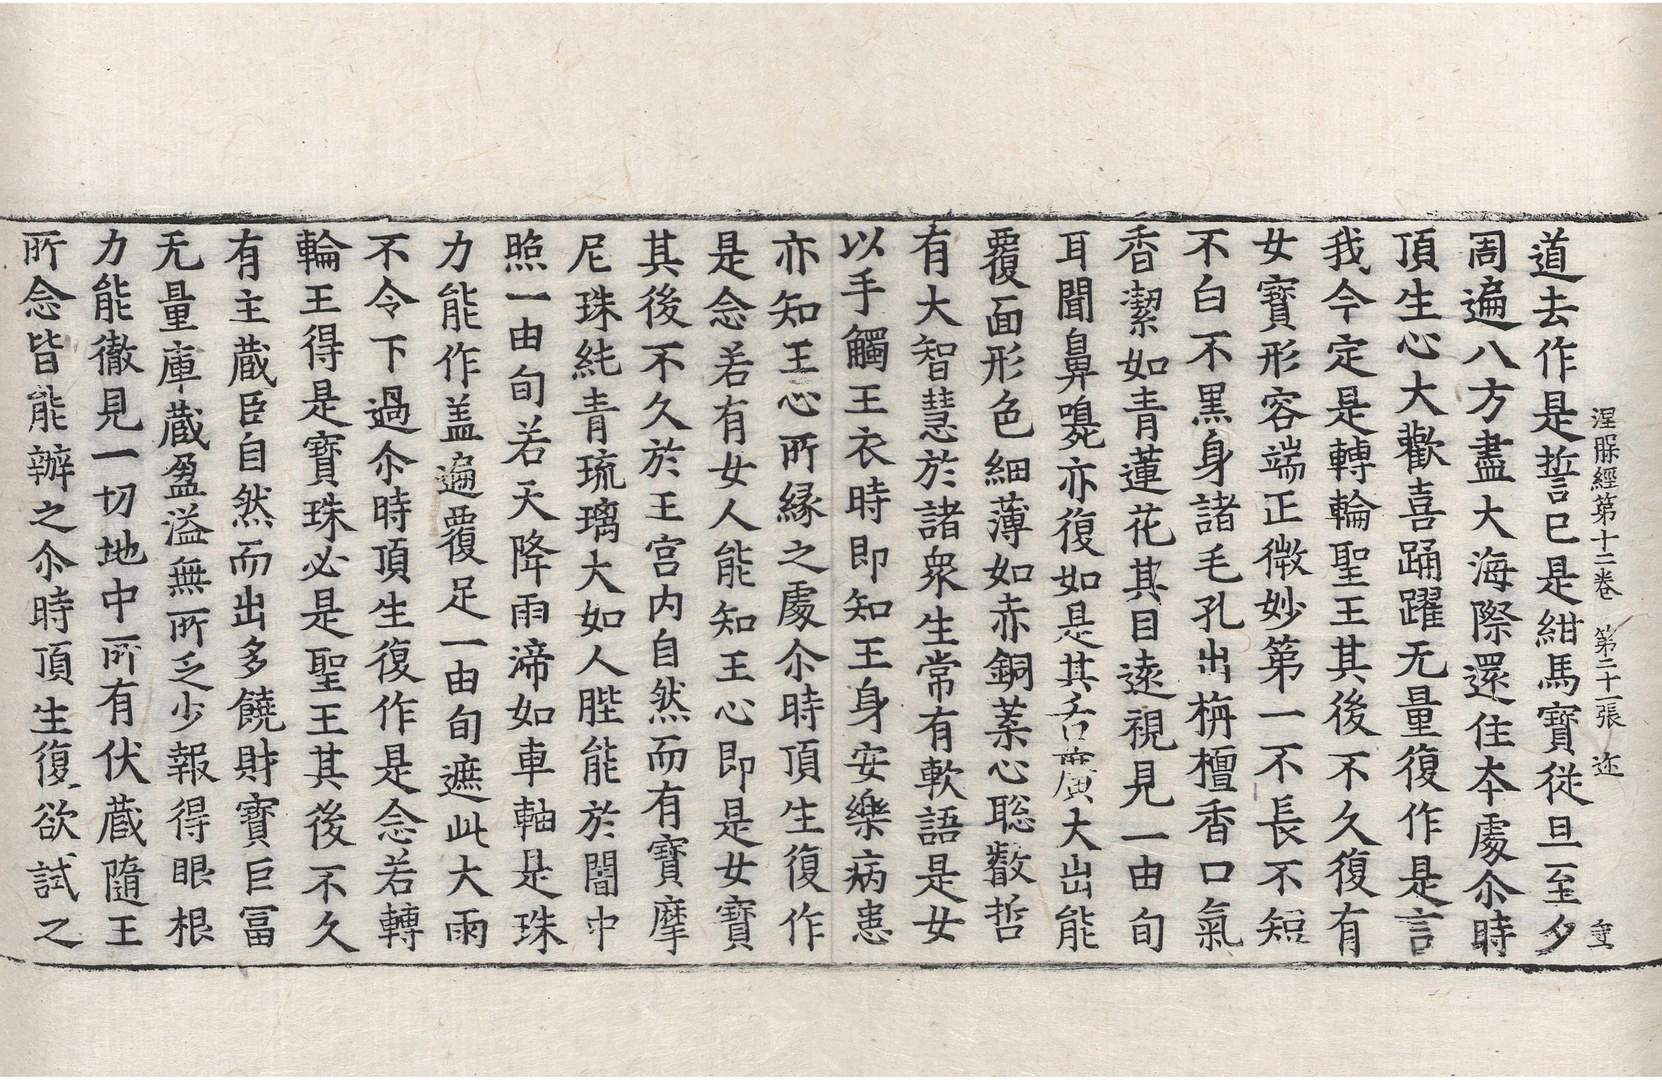 涅槃經第十二卷　第二十一張　迩
道去作是誓已是紺馬寶從旦至夕
周遍八方盡大海際還住本處尒時
頂生心大歡喜踊躍无量復作是言
我今定是轉輪聖王其後不久復有
女寶形容端正微妙第一不長不短
不白不黑身諸毛孔出栴檀香口氣
香潔如青蓮花其目遠視見一由旬
耳聞鼻嗅亦復如是其舌廣大出能
覆面形色細薄如赤銅葉心聡叡哲
有大智慧於諸衆生常有軟語是女
以手觸王衣時即知王身安樂病患
亦知王心所縁之處尒時頂生復作
是念若有女人能知王心即是女寶
其後不久於王宮内自然而有寶摩
尼珠純青琉璃大如人䏶能於闇中
照一由旬若天降雨渧如車軸是珠
力能作盖遍覆足一由旬遮此大雨
不令下過尒時頂生復作是念若轉
輪王得是寶珠必是聖王其後不久
有主蔵臣自然而出多饒財寶巨冨
无量庫蔵盈溢無所乏少報得眼根
力能徹見一切地中所有伏蔵隨王
所念皆能辦之尒時頂生復欲試之